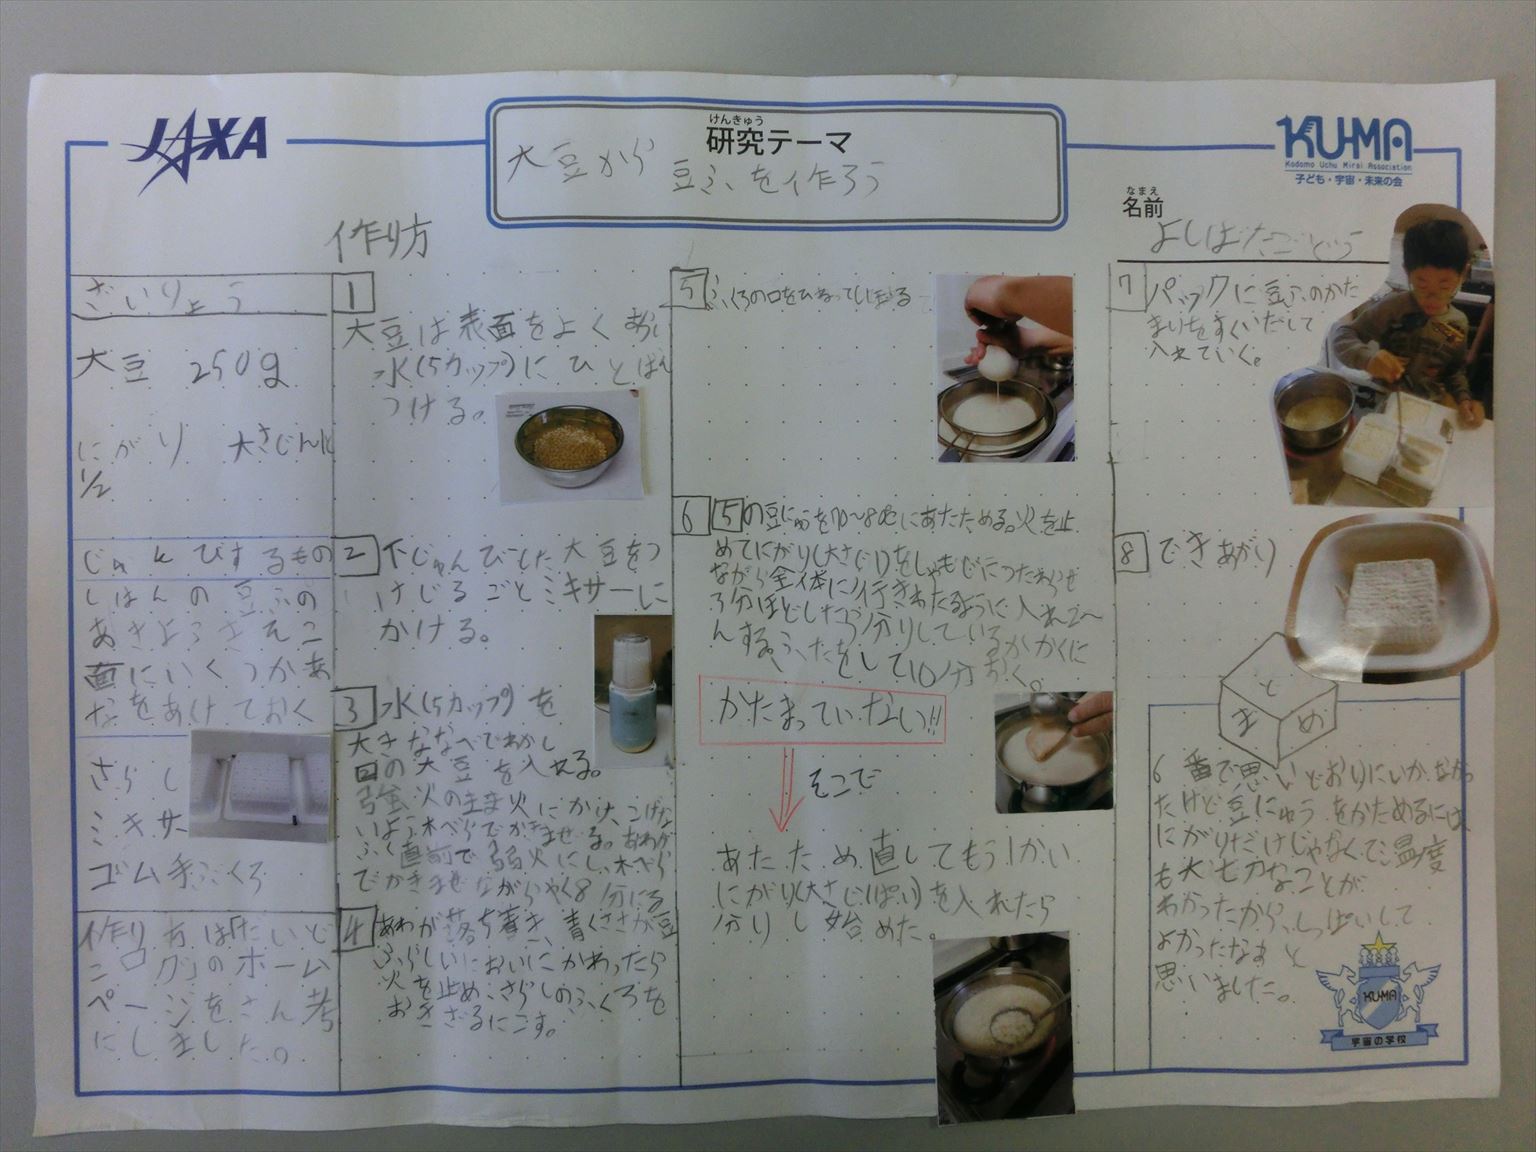 JAXA
けんきゅう
研究テーマ
大豆から豆ふを作ろう
KU-MA
Kodomo Uchu Mirai Association
子ども・宇宙・未来の会
なまえ
名前
よしばたごどう
作り方
ざいりょう
大豆 250g
にがり 大さじんに
1/2
じゅんびするもの
しはんの豆ふの
あきようきそこ
面にいくつかあ
なをあけておく
さらし
ミキサー
ゴム手ぶくろ
作り方は「だいど
こログ」のホーム
ページをさん考
にしました。
1
大豆は表面をよくあらい
水(5カップ)にひとばん
つける。
2 下じゅんびした大豆をつ
けじるごとミキサーに
かける。
3 水(5カップ)を
大きななべでわかし
の大豆を入れる。
強火のまま火にかけ、こげな
いよう木べらでかきまぜる。あわが
ふく直前で弱火にし、木べら
でかきまぜながらやく8分にる
4 あわが落ち着き、青くささが豆
ふらしいにおいにかわったら
火を止め、さらしのふくろを
おきざるにこす。
5 ふくろの口をひねってしぼる
6 5の豆にゅうを70〜80℃にあたためる。火を止
めてにがり(大さじ1)をしゃもじにつたわらせ
ながら全体に行きわたるように入れ2〜
3分ほどしたら分りしているかかくに
んする。ふたをして10分おく。
かたまっていない!!
そこで
あたため直してもう1かい
にがり(大さじ1ぱい)を入れたら
分りし始めた。
7 パックに豆ふのかた
まりをすくいだして
入れていく。
8 できあがり
まとめ
6番で思いどおりにいかなかっ
たけど豆にゅうをかためるには
にがりだけじゃなくて温度
も大切なことが
わかったから、しっぱいして
よかったなぁと
思いました。
KU-MA
宇宙の学校